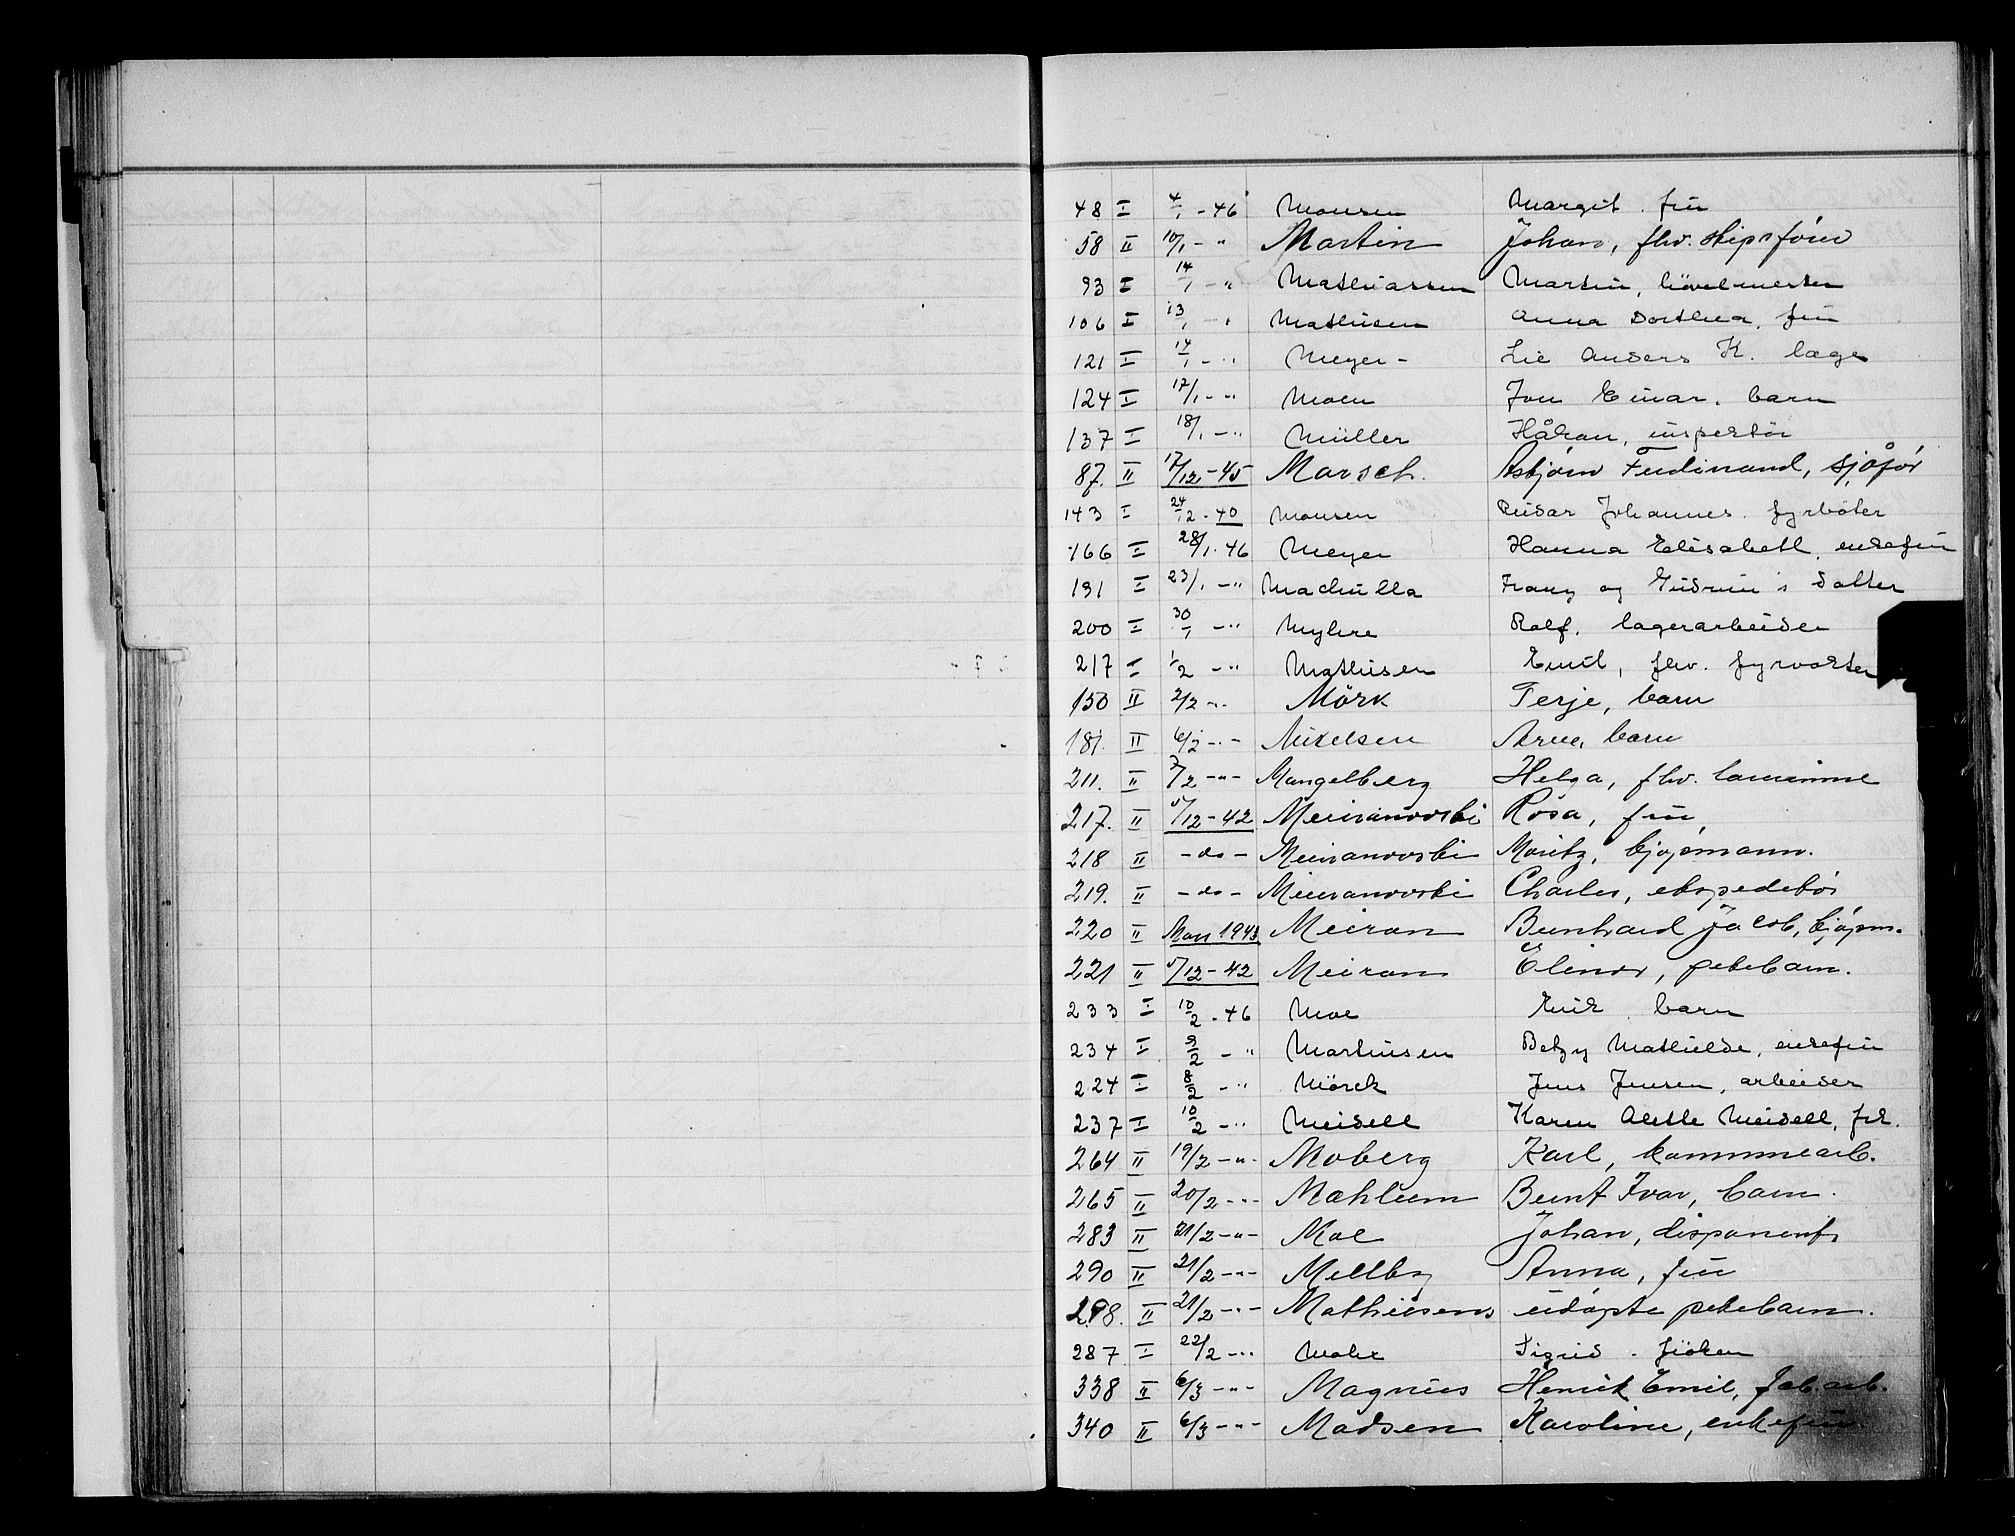 48 I 4/1 - 46 Monsen Margit. fru
58 II 10/1 - " Martin Johan, fhv. skipsfører
93 I 14/1 - " Mathiassen Martin, hövelmester
106 I 13/1 - " Mathisen Anna Dorthea, fru
121 I 14/1 - " Meyer - Lie Anders K. læge
124 I 17/1 - " Moen Jon Einar. barn
137 I 18/1 - " Müller Håkon, inspektör
87. II 17/12 - 45 Marsch. Asbjörn Ferdinand, sjåför
143 I 24/12 - 40 Monsen Reidar Johannes. fyrböter
166 I 28/1 - 46 Meyer Hanna Elisabeth. enkefru
191 I 23/1 - " Machulla Franz og Gudrun's datter
200 I 30/1 - " Myhre Rolf. lagerarbeider
217 I 1/2 - " Mathisen Emil, fhv. fyrvokter
150 II 2/2 - " Mörk Terje, barn
181. II 6/2 - " - Mikelsen Arne, barn
211. II 7/2 - " - Mangelberg Helga, fhv. lærerinne
217. II 5/12 - 42 Meiranovski Rosa, fru
218 II - do - Meiranovski Moritz, kjøpmann.
219. II - do - Meiranovski Charles, ekspeditør
220 II Mars 1943 Meiran Bernhard Jacob, kjøpm.
221 II 5/12 - 42 Meiran Elinor, pikebarn.
233 I 10/2 - 46 Moe Erik. barn
234 I 9/2 - " Martinsen Betzy Mathilde, enkefru
224 I 8/2 - " Mörck Jens Jensen, arbeider
237 I 10/2 - " Meidell Karen Alette Meidell, frk.
264 II 19/2 - " - Moberg Karl, kommunearb.
265 II 20/2 - " - Mæhlum Bernt Ivar, barn.
283 II 21/2 - " - Moe Johan, disponent
290 II 21/2 - " - Mellby Anna, fru
298. II 21/2 - " - Mathisens udøpte pikebarn.
287 I 22/2 - " Mohr Sigrid. fröken
338 II 6/3 - " - Magnus Henrik Emil, fab.arb.
340 II 6/3 - " - Madsen Karoline, enkefru